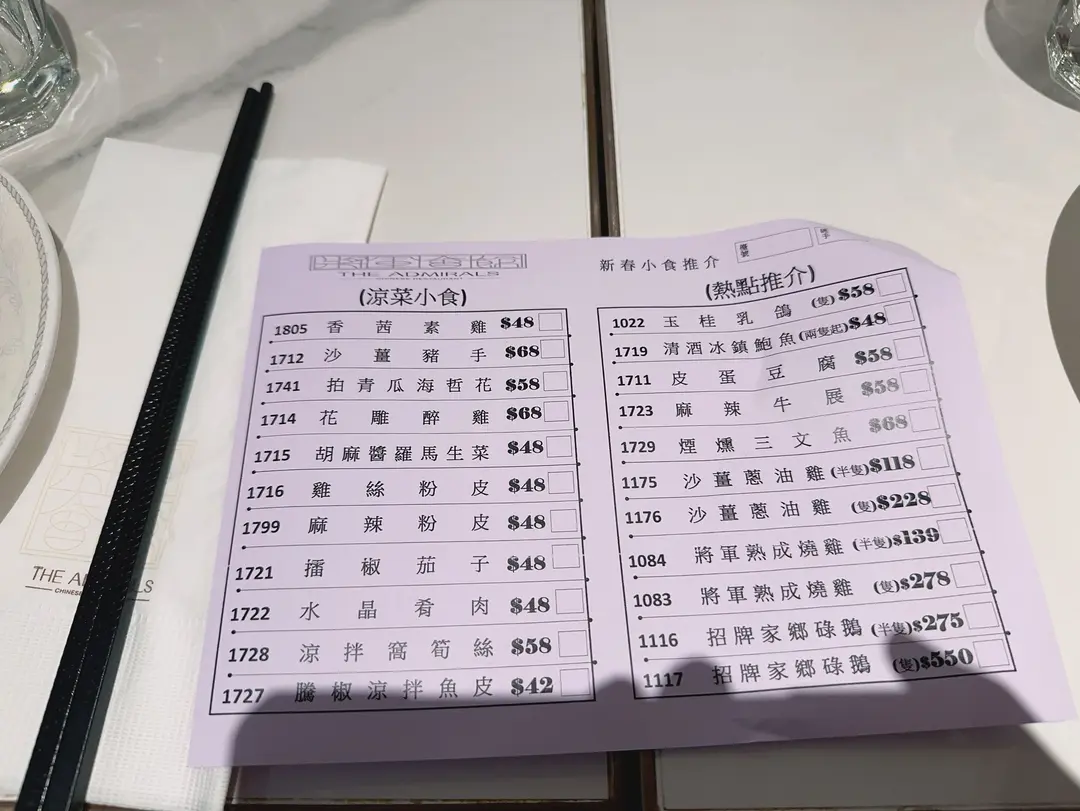 將軍會館
THE ADMIRALS
CHINESE RESTAURANT
新春小食推介
檯號
(涼菜小食)
1805 香茜素雞 $48
1712 沙薑豬手 $68
1741 拍青瓜海哲花 $58
1714 花雕醉雞 $68
1715 胡麻醬羅馬生菜 $48
1716 雞絲粉皮 $48
1799 麻辣粉皮 $48
1721 擂椒茄子 $48
1722 水晶肴肉 $48
1728 涼拌窩筍絲 $58
1727 騰椒涼拌魚皮 $42
(熱點推介)
1022 玉桂乳鴿 (隻) $58
1719 清酒冰鎮鮑魚 (兩隻起) $48
1711 皮蛋豆腐 $58
1723 麻辣牛展 $58
1729 煙燻三文魚 $68
1175 沙薑蔥油雞 (半隻) $118
1176 沙薑蔥油雞 (隻) $228
1084 將軍熟成燒雞 (半隻) $139
1083 將軍熟成燒雞 (隻) $278
1116 招牌家鄉碌鵝 (半隻) $275
1117 招牌家鄉碌鵝 (隻) $550